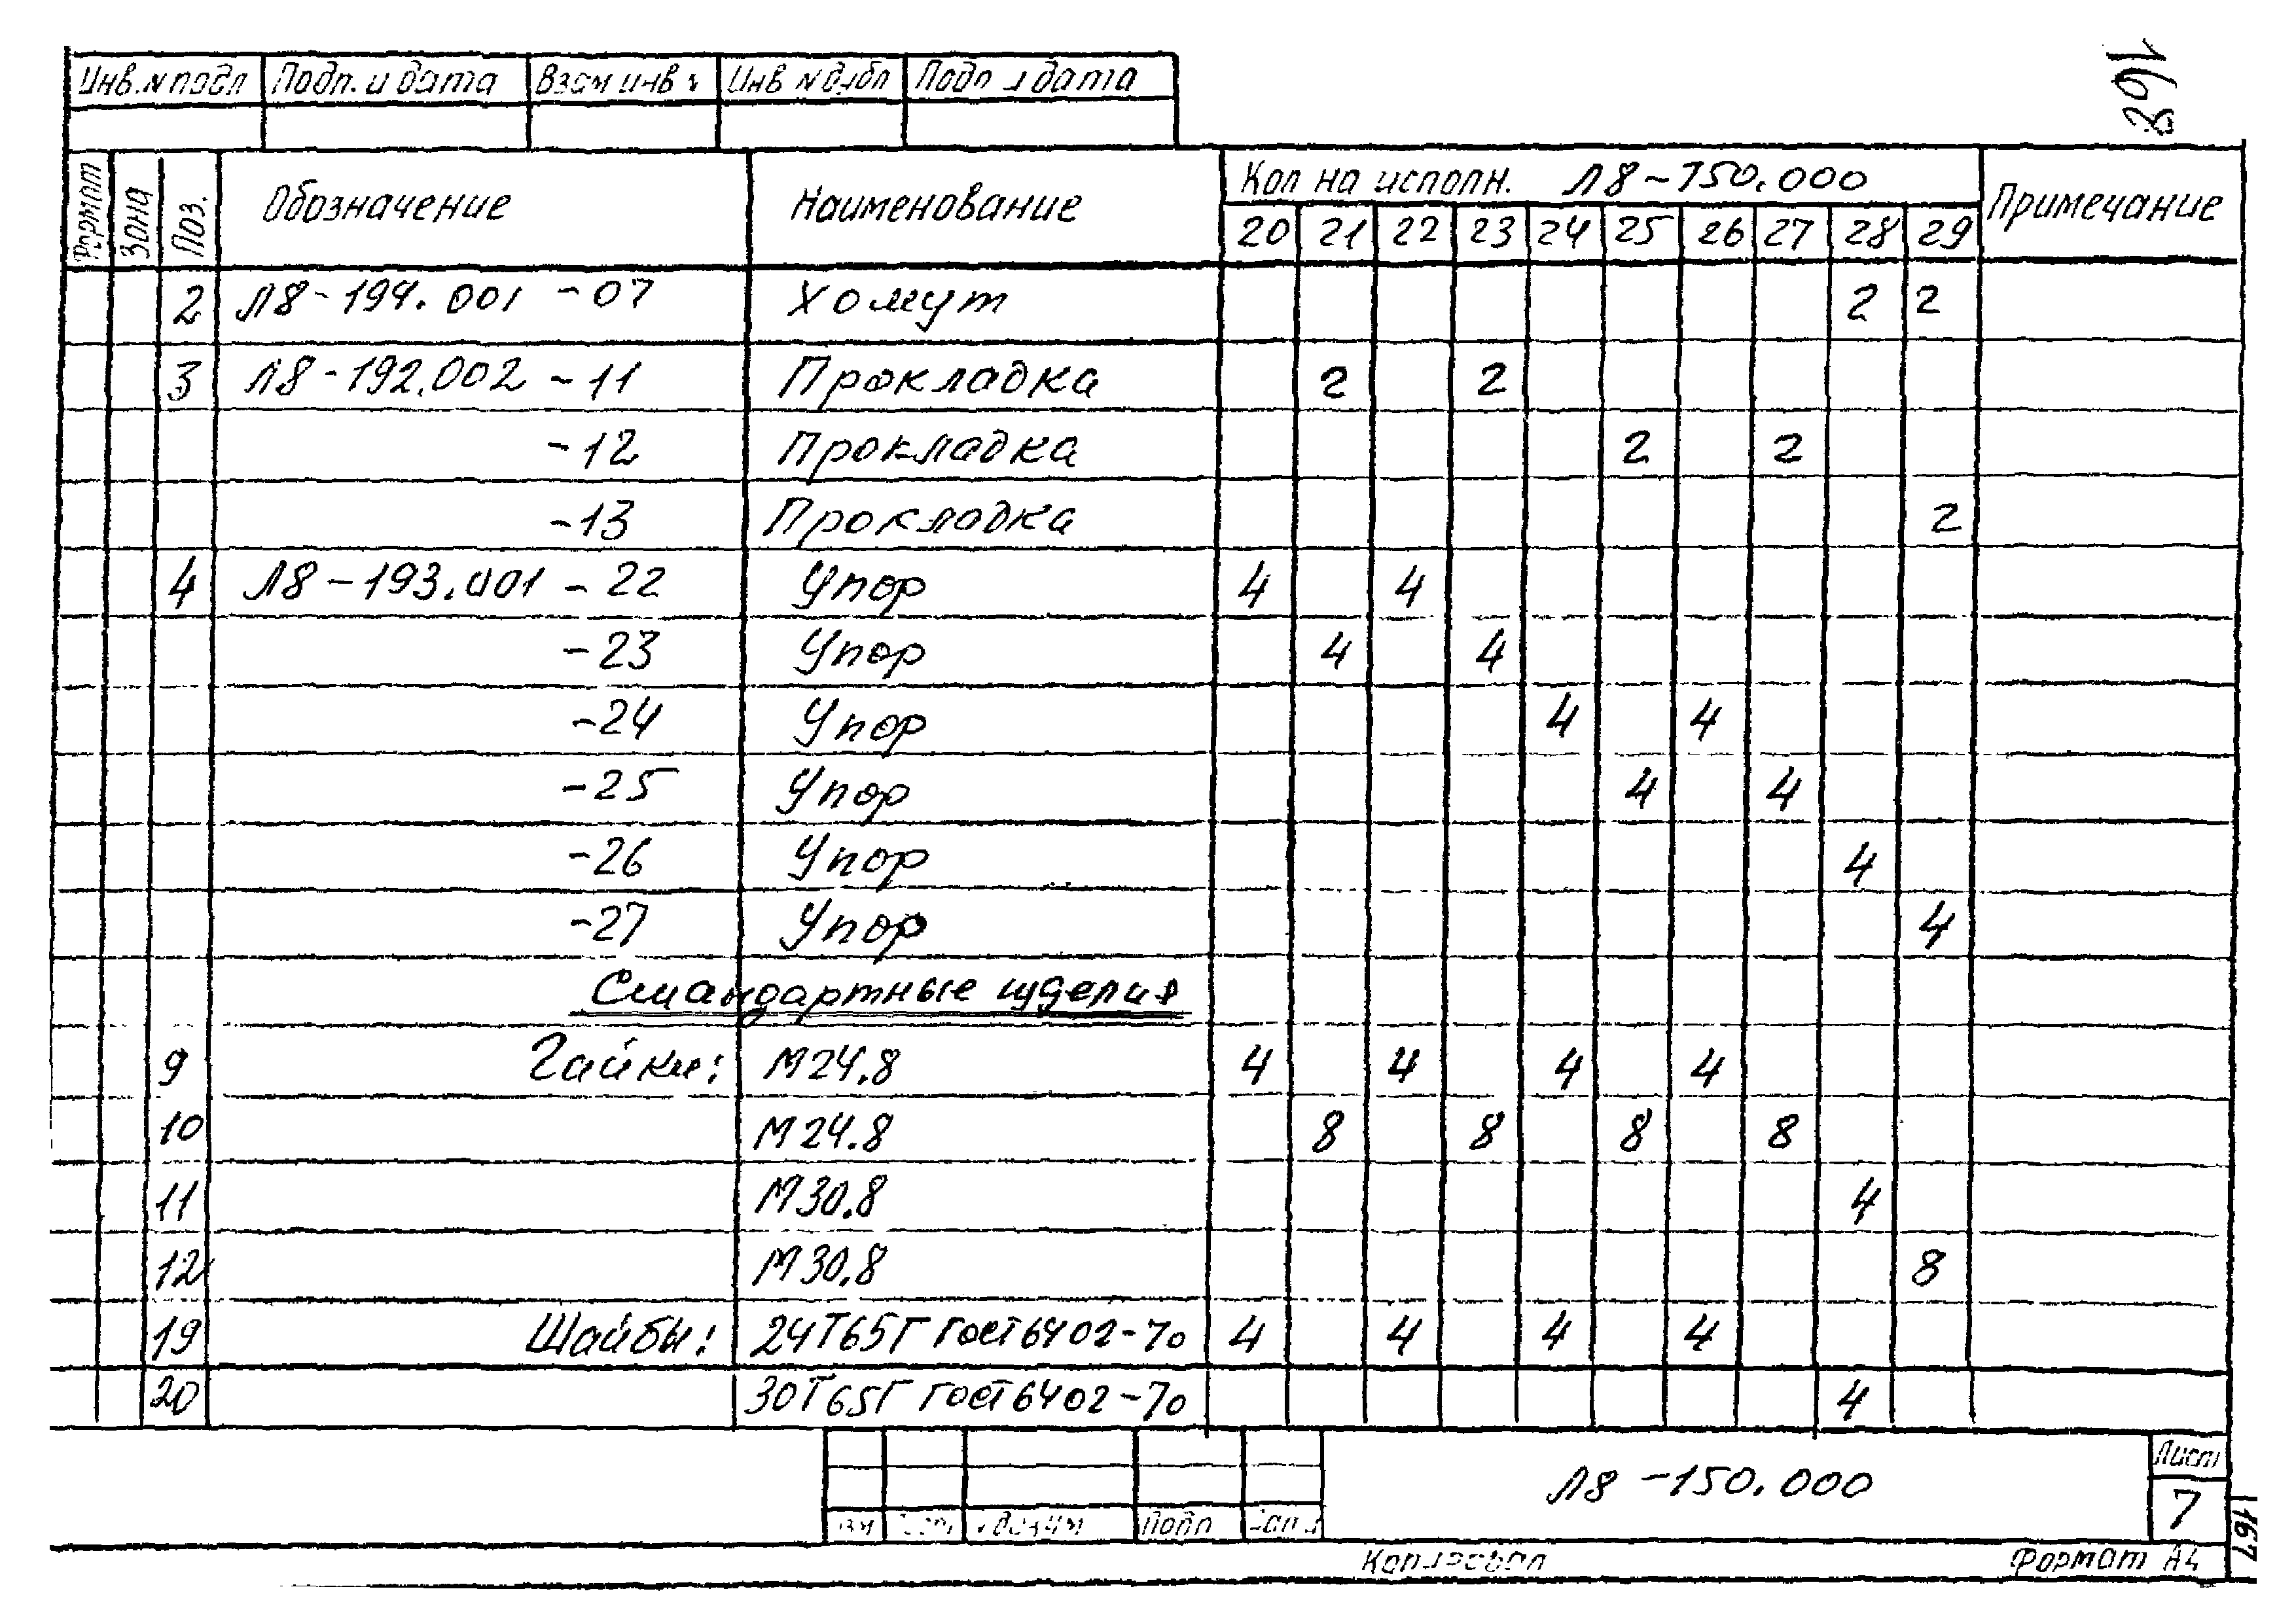 168
Инв.N подл Подп. и дата Взам инв N Инв N дубл Подп и дата
Формат Зона Поз. Обозначение Наименование Кол на исполн. Л8-150.000 Примечание
20 21 22 23 24 25 26 27 28 29
2 Л8-194.001 -07 Хомут 2 2
3 Л8-192.002 -11 Прокладка 2 2
-12 Прокладка 2 2
-13 Прокладка 2
4 Л8-193.001 -22 Упор 4 4
-23 Упор 4 4
-24 Упор 4 4
-25 Упор 4 4
-26 Упор 4
-27 Упор 4
Стандартные изделия
9 Гайки: М24.8 4 4 4 4
10 М24.8 8 8 8 8
11 М30.8 4
12 М30.8 8
19 Шайбы: 24Т65Г ГОСТ6402-70 4 4 4 4
20 30Т65Г ГОСТ6402-70 4
Л8-150.000
Лист
7
Подп
Копировал Формат А4
167